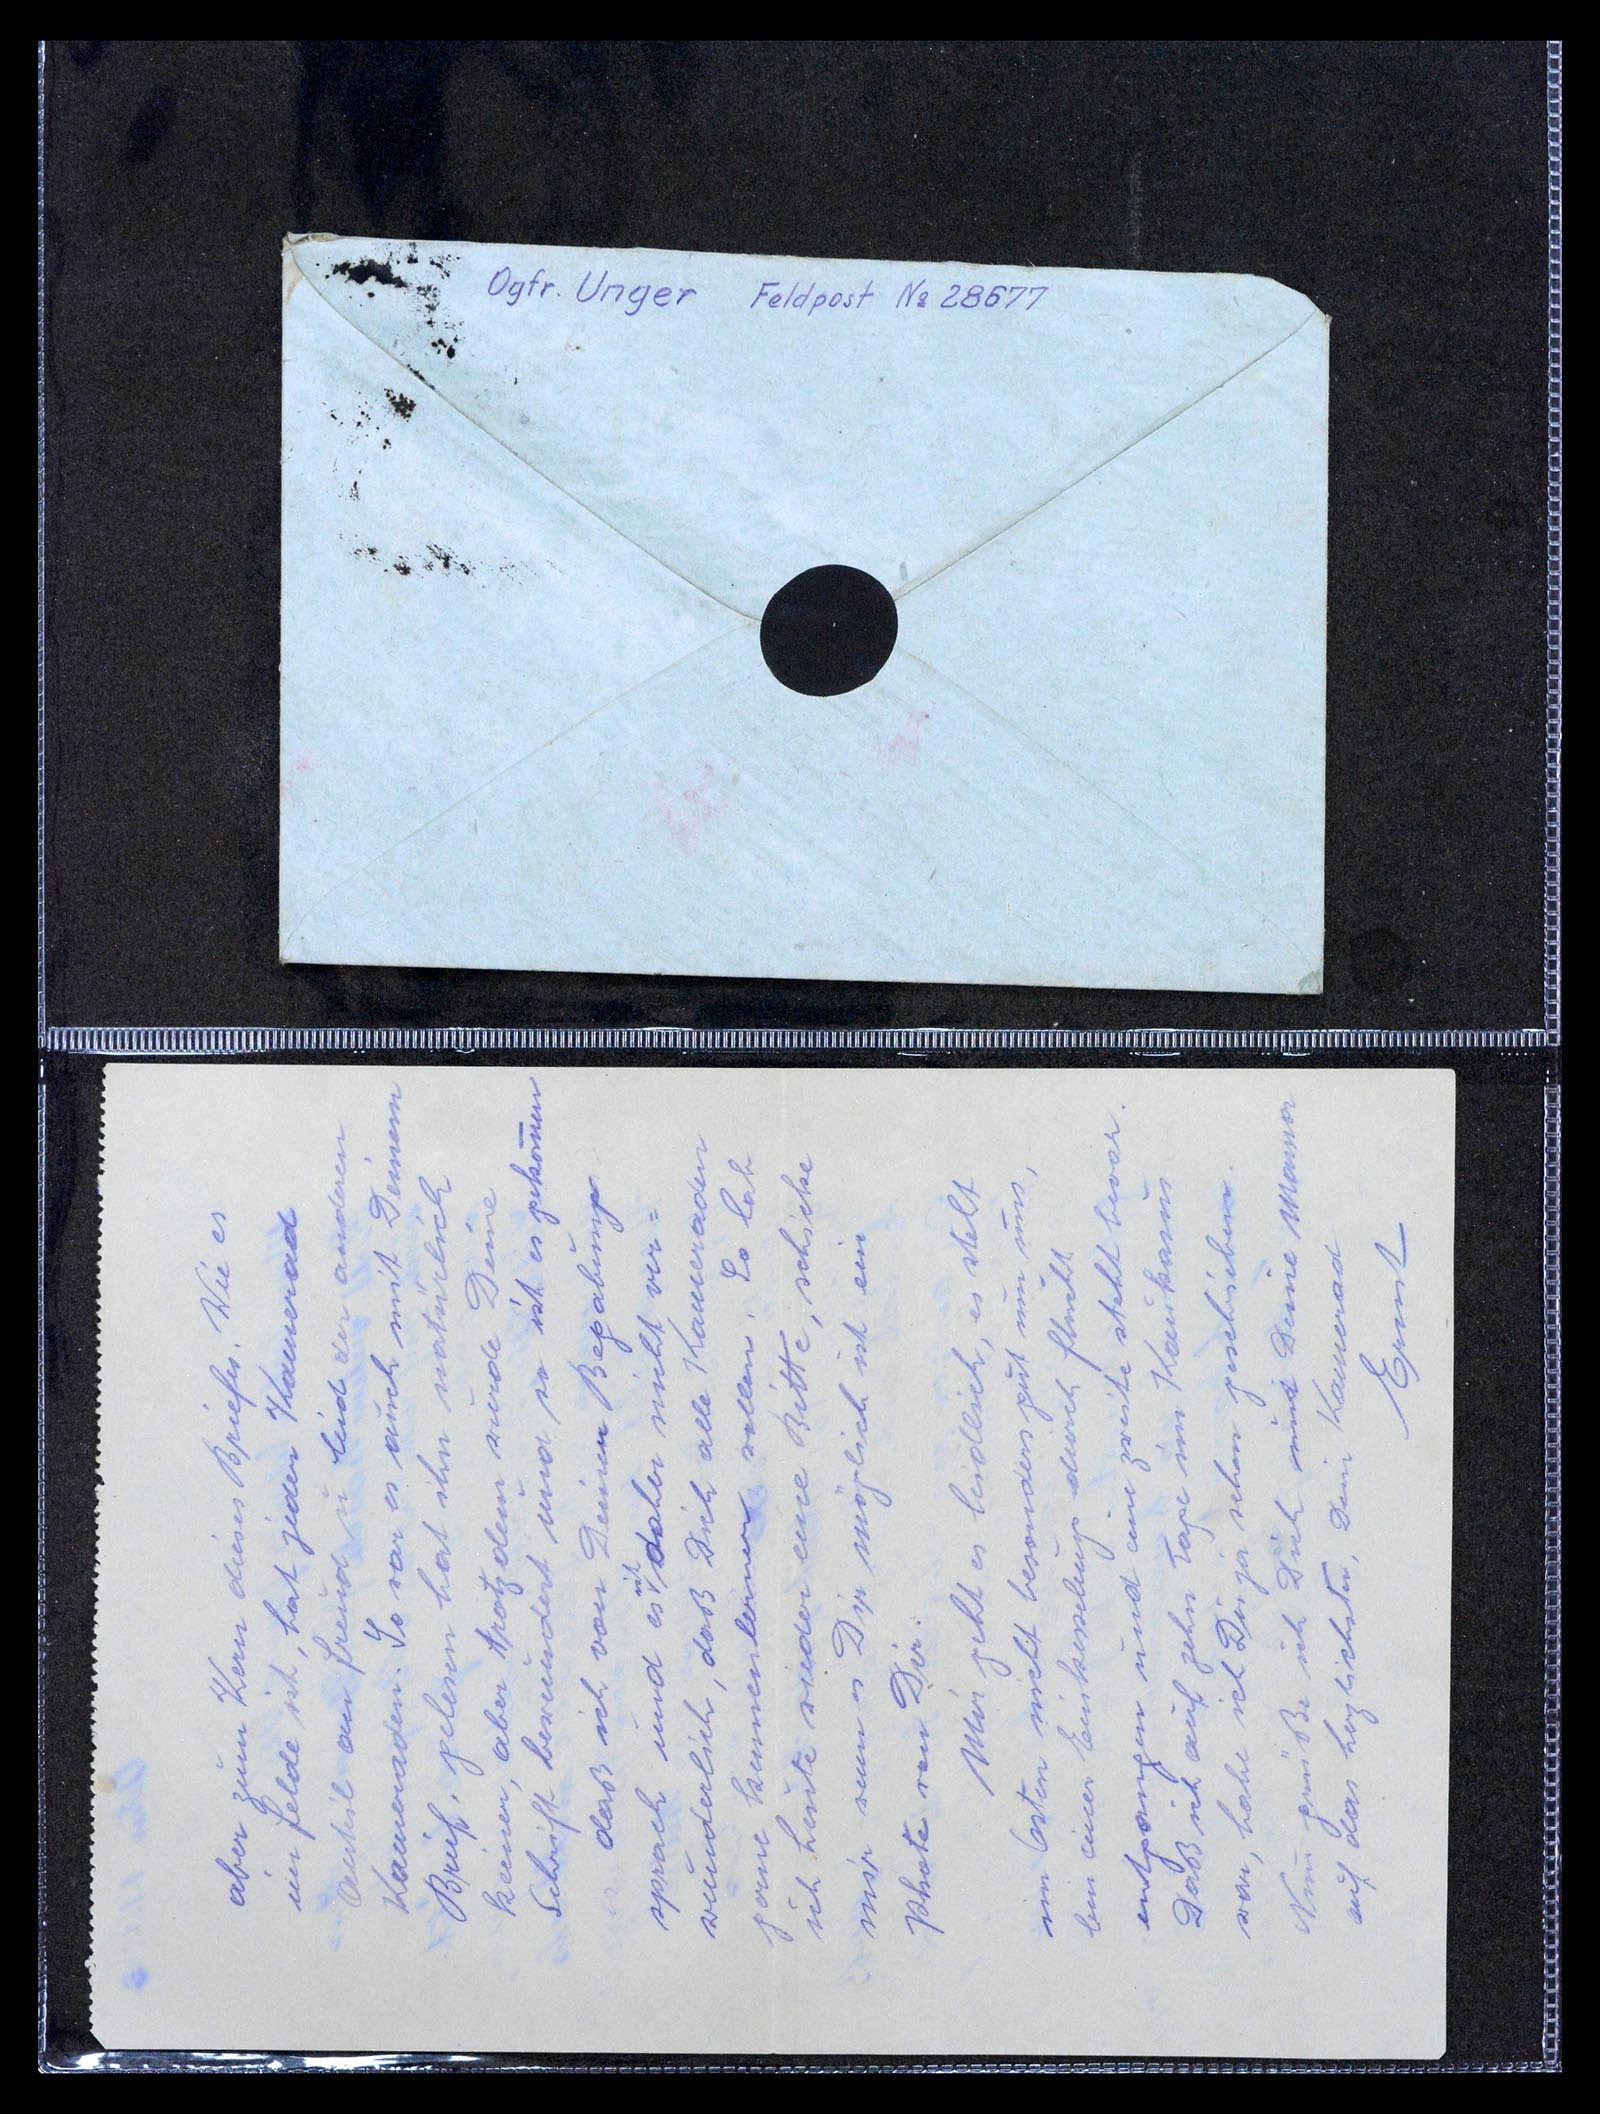 Ogfr. Unger Feldpost № 28677
aber zum Kern dieses Briefes. Wie es
im Felde ist, hat jeder Kamerad
Anteil an Freud u. Leid der anderen
Kameraden. So war es auch mit Deinem
Brief, gelesen hat ihn natürlich
keiner, aber trotzdem wurde Deine
Schrift bewundert und so ist es gekom̅en
daß ich von Deiner Begabung
sprach und es ist daher nicht ver=
wunderlich, daß Dich alle Kameraden
gerne kennenlernen wollen. So hab
ich heute wieder eine Bitte, schicke
mir wenn es Dir möglich ist ein
Photo von Dir.
Mir geht es leidlich, es steht
im Osten nicht besonders gut um uns,
bin einer Einkesselung durch Flucht
entgangen und eine zweite steht bevor.
Daß ich auf zehn Tage im Kaukasus
war, habe ich Dir ja schon geschrieben.
Nun grüße ich Dich und Deine Mama
auf das herzlichste, Dein Kamerad
Ernst